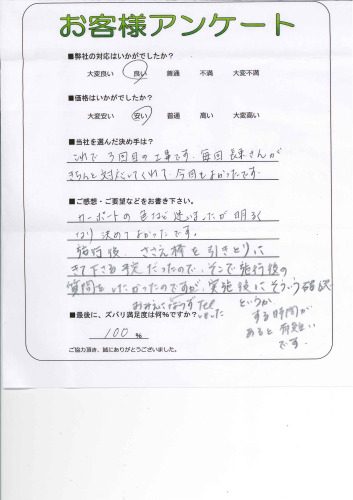 お客様アンケート
■弊社の対応はいかがでしたか?
大変良い 良い 普通 不満 大変不満
■価格はいかがでしたか?
大変安い 安い 普通 高い 大変高い
■当社を選んだ決め手は?
これで3回目の工事です。毎回長束さんが
きちんと対応してくれて、今回もよかったです。
■ご感想・ご要望などをお書き下さい。
カーポートの色など迷いましたが明るく
なり決めてよかったです。
施行後 ささえ棒を引きとりに
きて下さる予定だったので、そこで施行後の
質問をしたかったのですが、実施後にそういう確認
おみえにならず Tel しました
というか
する時間が
あると有難い
です。
■最後に、ズバリ満足度は何%ですか?
100 %
ご協力頂き、誠にありがとうございました。